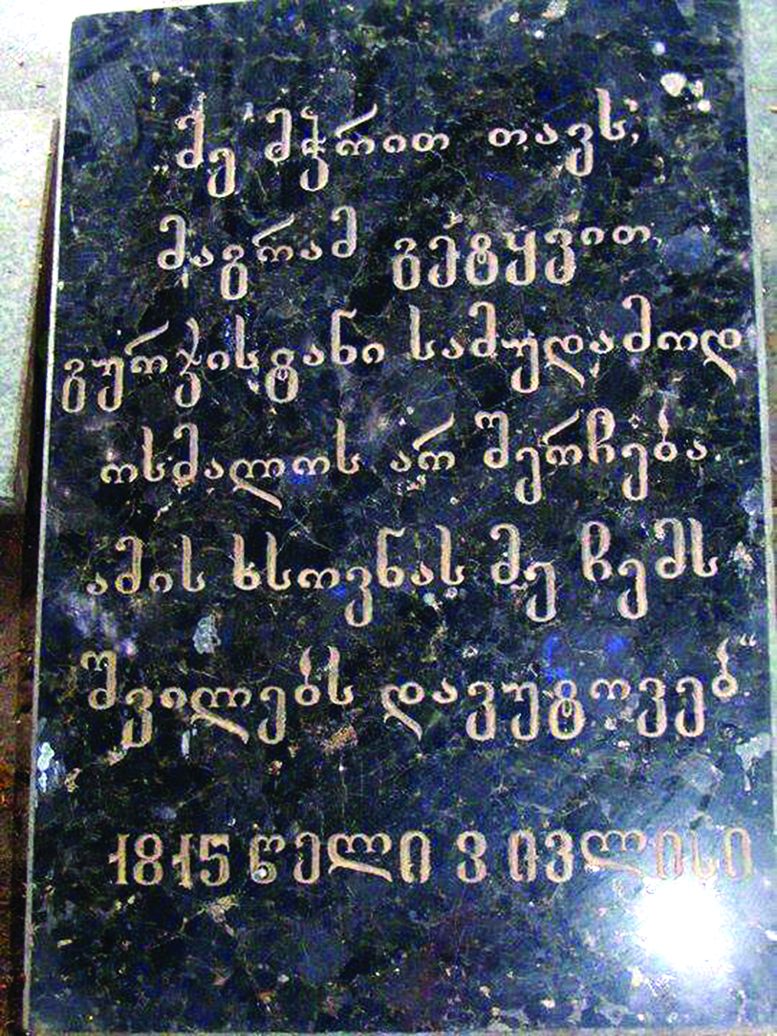 „მე მჭრით თავს,
მაგრამ გეტყვით,
გურჯისტანი სამუდამოდ
ოსმალოს არ შერჩება.
ამის ხსოვნას მე ჩემს
შვილებს დავუტოვებ.“
1815 წელი 3 ივლისი